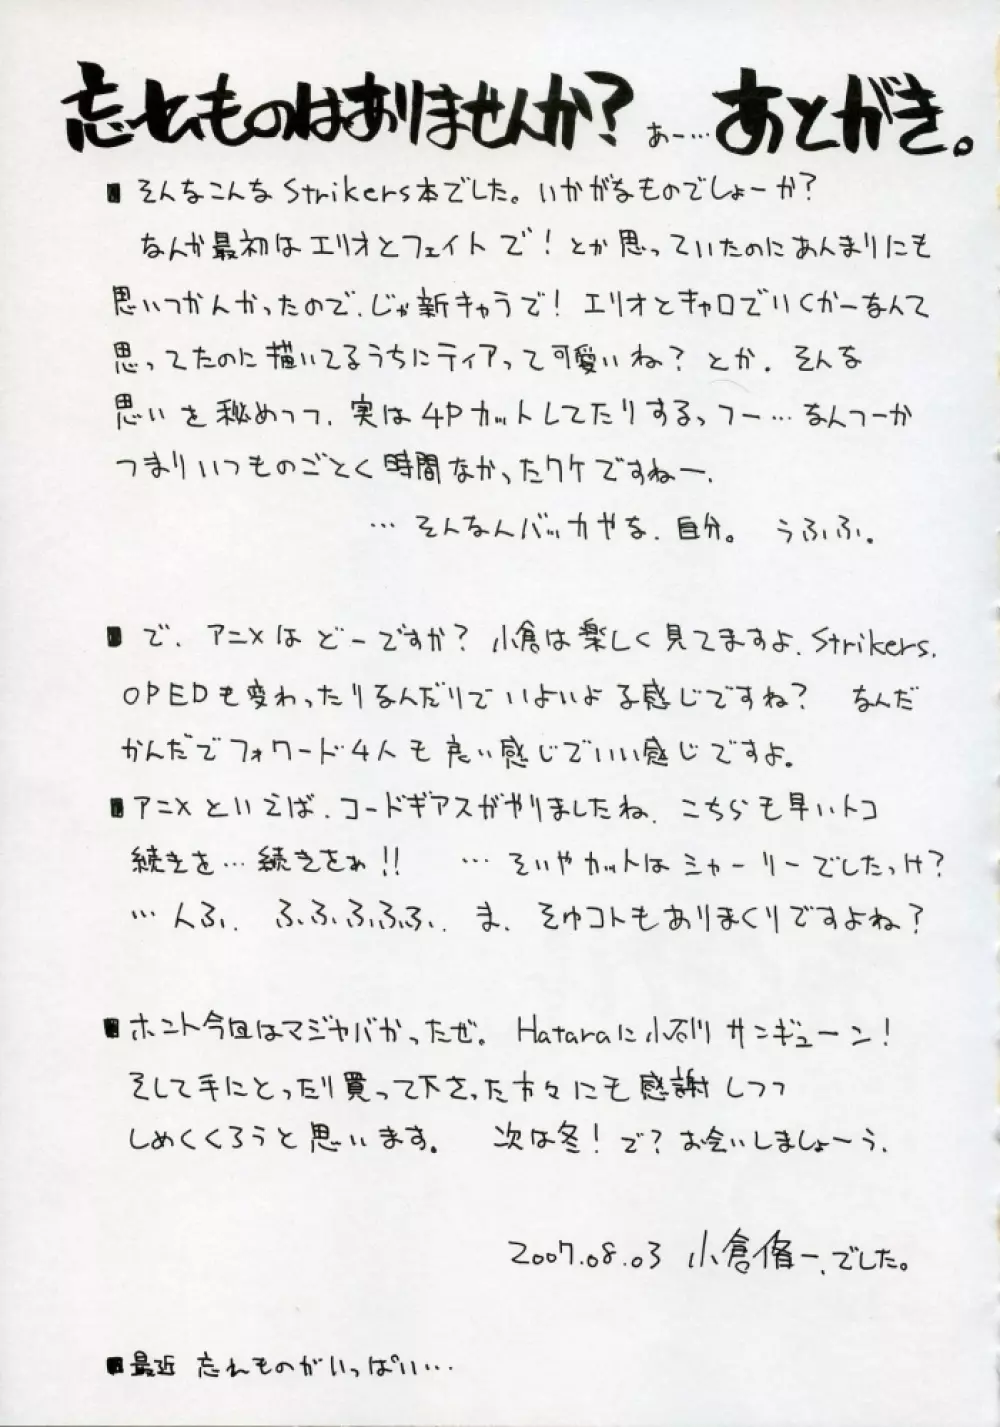 忘れものはありませんか? あー… あとがき。
■ そんなこんなStrikers本でした。いかがなものでしょーか?
なんか最初はエリオとフェイトで!とか思っていたのにあんまりにも
思いつかんかったので、じゃ新キャラで!エリオとキャロでいくかーなんて
思ってたのに描いてるうちにティアって可愛いね?とか、そんな
思いを秘めつつ、実は4Pカットしてたりするっつー…なんつーか
つまりいつものごとく時間なかったワケですねー、
…そんなんバッカやな、自分。 うふふ。
■ で、アニメはどーですか?小倉は楽しく見てますよ、Strikers.
OPEDも変わったりなんだりでいよいよな感じですね? なんだ
かんだでフォワード4人も良い感じでいい感じですよ。
■アニメといえば、コードギアスがやりましたね、こちらも早いトコ
続きを…続きをぉ!! …そいやカットはシャーリーでしたっけ?
…んふ、ふふふふふ、ま、そゆコトもありまくりですよね?
■ホント今回はマジヤバかったぜ。Hataraに小石川サンギューン!
そして手にとったり買って下さった方々にも感謝しつつ
しめくくろうと思います。 次は冬!で?お会いしましょーう、
2007.08.03 小倉脩一、でした。
■最近 忘れものがいっぱい…